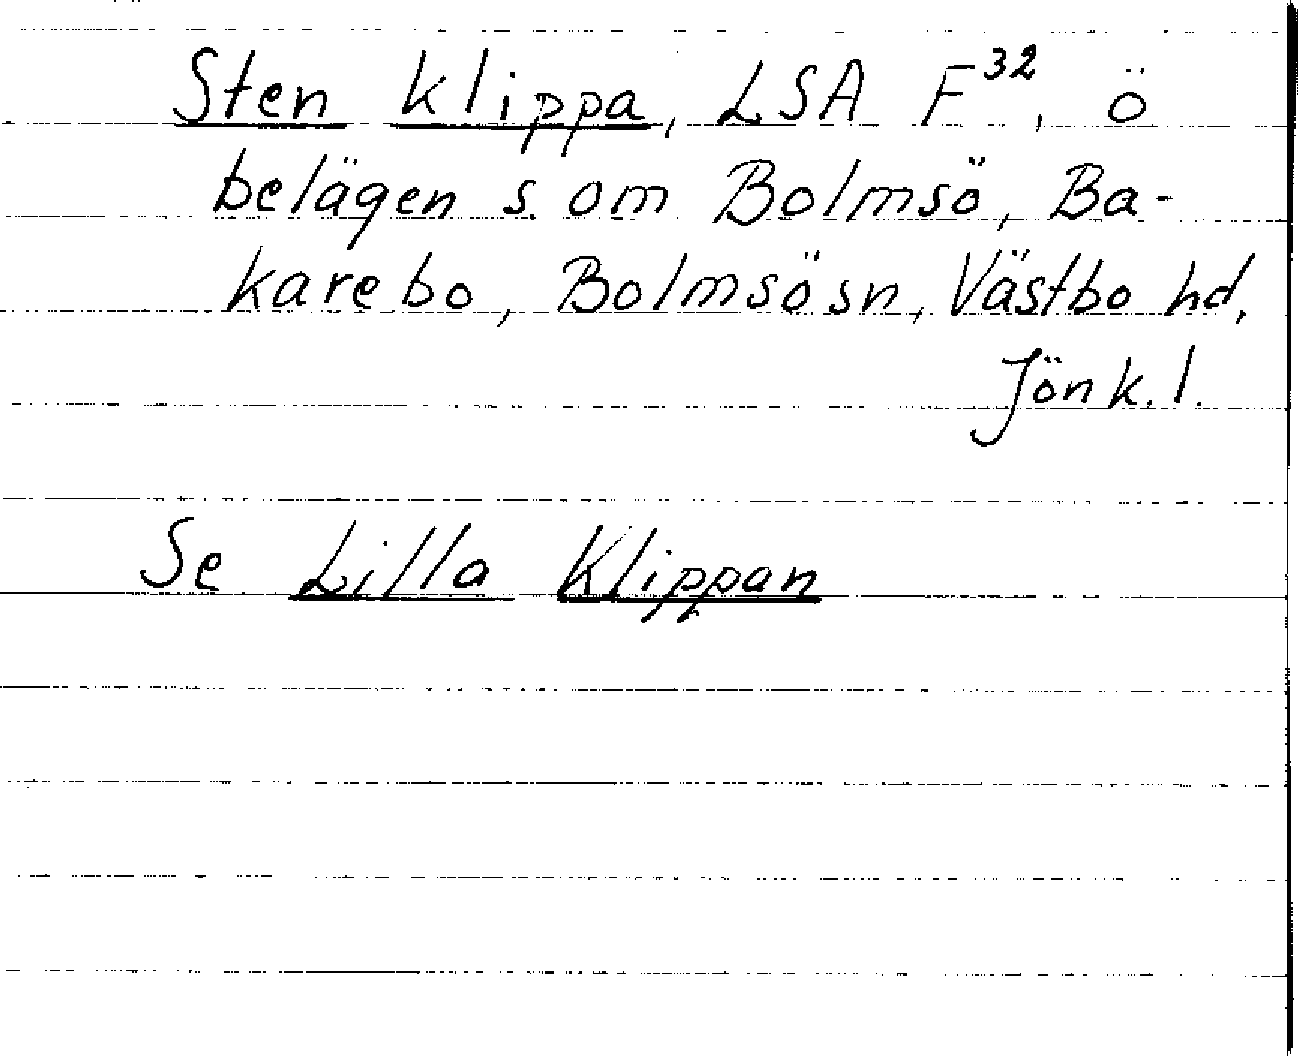 Sten klippa, LSA F³², ö
belägen s. om Bolmsö, Ba-
karebo, Bolmsösn, Västbo hd,
Jönk. l.
Se Lilla Klippan